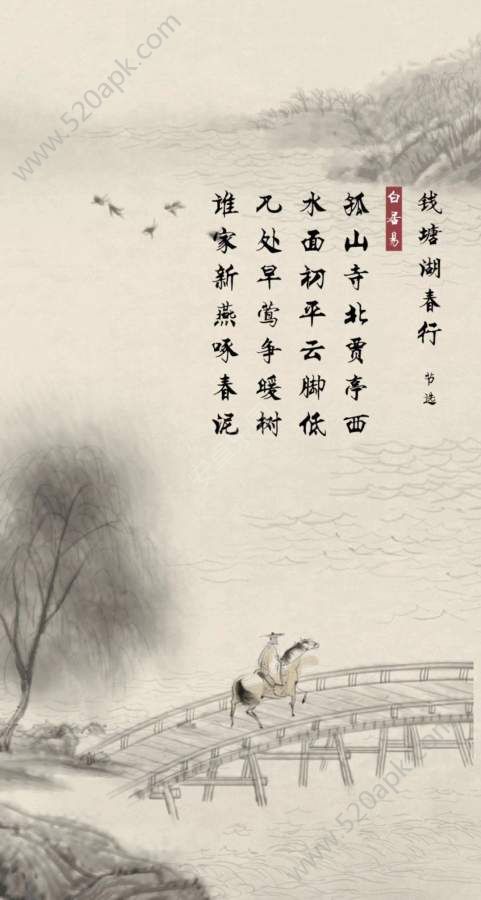 钱塘湖春行 节选
白居易
孤山寺北贾亭西
水面初平云脚低
几处早莺争暖树
谁家新燕啄春泥
www.520apk.com
www.520apk.com